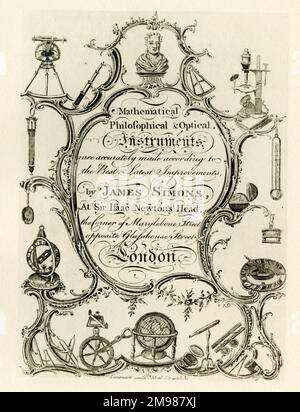 Mathematical
Philosophical & Optical,
Instruments,
are accurately made according to
the Best & Latest Improvements,
by JAMES SIMONS,
At Sir Isaac Newtons Head
the Corner of Marylebone Street
opposite Glasshouse Street
London.
alamy
Image ID: 2M987XJ
www.alamy.com